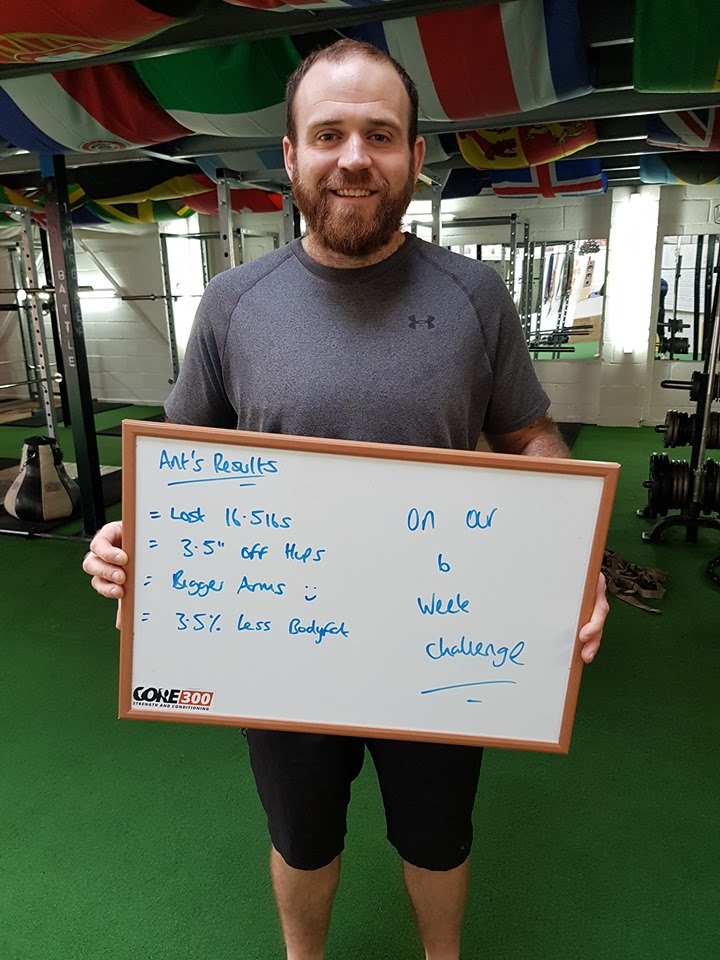 BATTLE
Ant's Results
= Lost 16.5lbs
= 3.5" off Hips
= Bigger Arms :)
= 3.5% Less Bodyfat
On our
6
Week
challenge
CORE 300
STRENGTH AND CONDITIONING